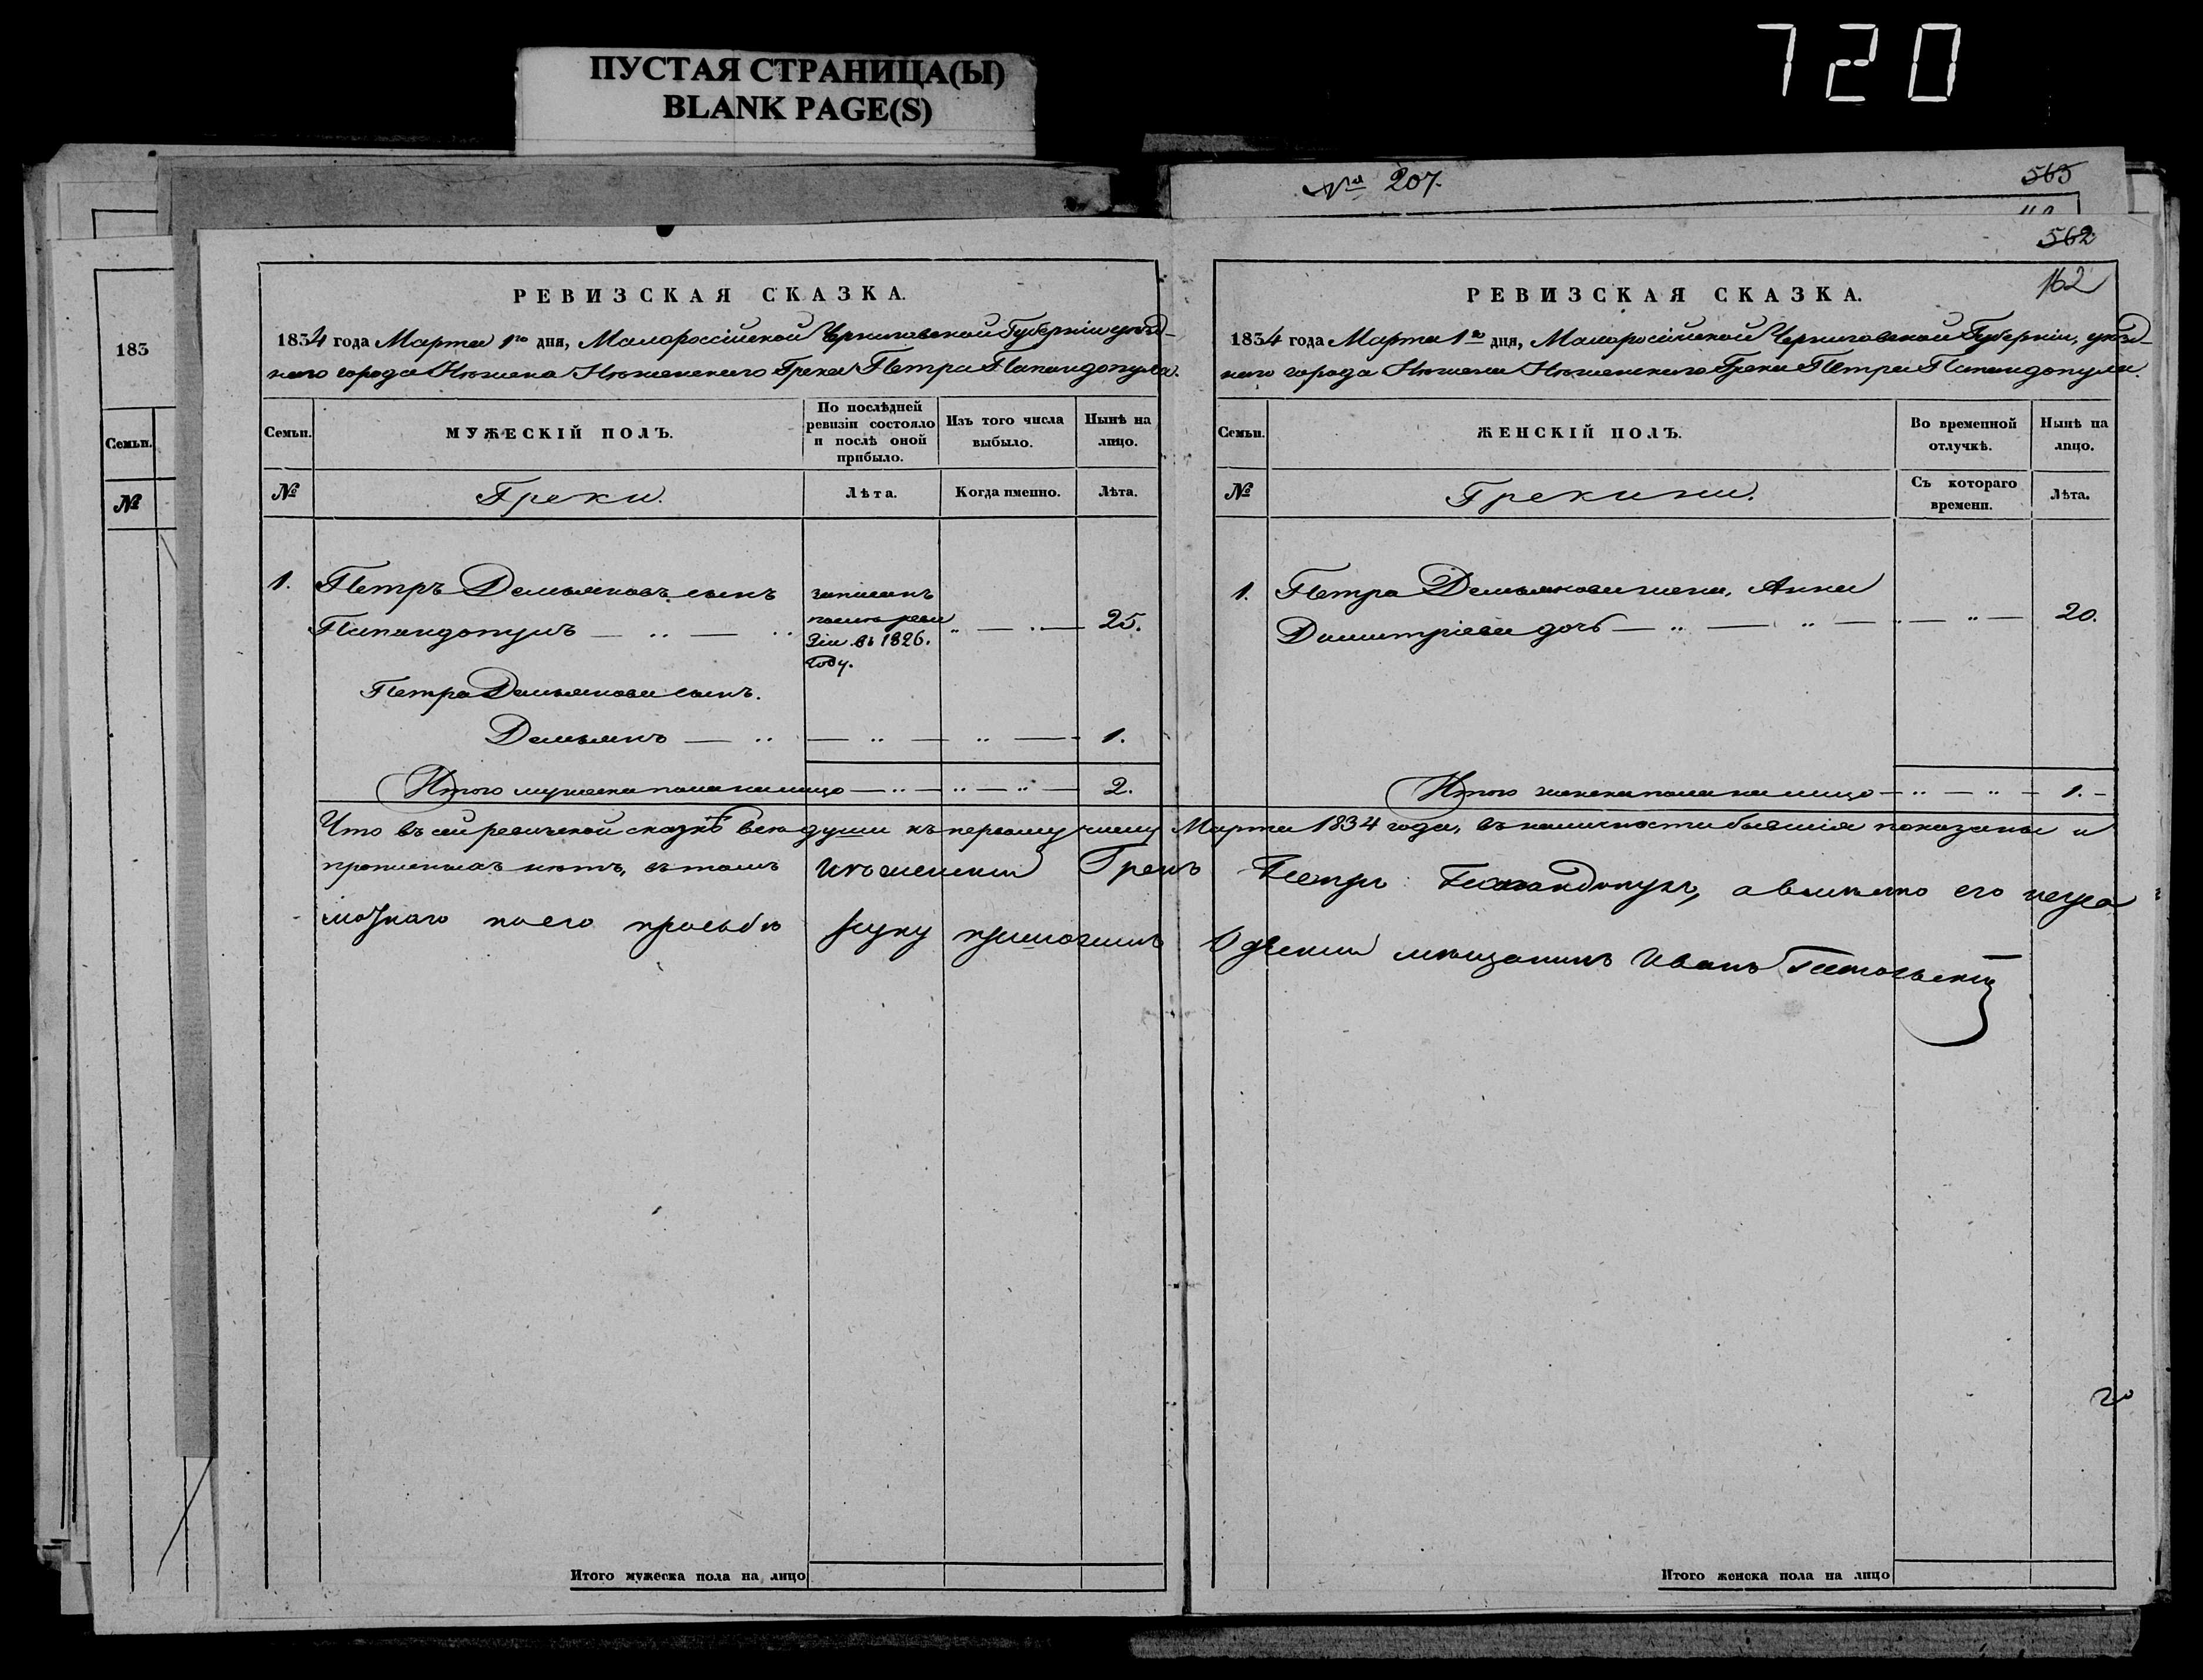 720
ПУСТАЯ СТРАНИЦА(Ы)
BLANK PAGE(S)
183
Семьи.
№
РЕВИЗСКАЯ СКАЗКА.
1834 года Марта 1го дня, Малоросѣійской Черниговской Губерніи уѣзд-
наго города Нѣжина Нѣжинскаго Грека Петра Папандопула.
Семьи.
МУЖЕСКІЙ ПОЛЪ.
По послѣдней ревизіи состояло и послѣ оной прибыло.
Изъ того числа выбыло.
Нынѣ на лицо.
№
Греки.
Лѣта.
Когда именно.
Лѣта.
1. Петръ Демьяновъ сынъ
Папандопулъ
записанъ
послѣ реви
зіи въ 1826.
году.
25.
Петра Демьянова сынъ.
Демьянъ 1.
Итого мужеска пола на лицо 2.
Что въ сей ревизской сказкѣ всѣ души къ первому числу Марта 1834 года, въ наличности бывшія показаны и
прописныхъ нѣтъ, въ томъ Нѣжинскій Грекъ Петръ Папандопулъ, а вмѣсто его негра
мотнаго по его прозьбѣ руку приложилъ мѣщанинъ Иванъ
Итого мужеска пола на лицо
№ 207.
565
562
162
РЕВИЗСКАЯ СКАЗКА.
1834 года Марта 1го дня, Малоросійской Черниговской Губерніи, уѣзд-
наго города Нѣжина Нѣжинскаго Грека Петра Папандопула.
Семьи.
ЖЕНСКІЙ ПОЛЪ.
Во временной отлучкѣ.
Нынѣ на лицо.
№
Грекини.
Съ котораго времени.
Лѣта.
1. Петра Демьянова жена, Анна
Димитріева дочь 20.
Итого женска пола на лицо 1.
Итого женска пола на лицо